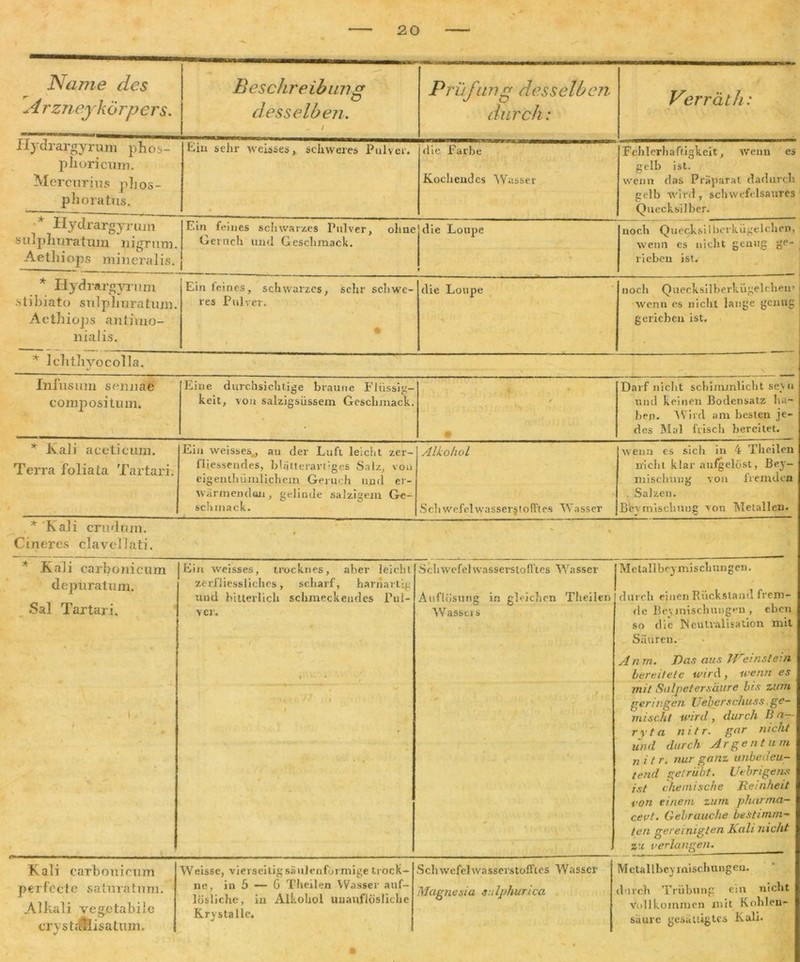 — 20 —
Name des
Arzneykörpers.
Beschreibung
desselben.
Prüfung desselben
durch:
Verräth:
Hydrargyrum phos-
phoricum.
Mercurius phos-
phoratus.
Ein sehr weisses, schweres Pulver.
die Farbe
Kochendes Wasser
Fehlerhaftigkeit, wenn es
gelb ist.
wenn das Präparat dadurch
gelb wird, schwefelsaures
Quecksilber.
* Hydrargyrum
sulphuratum nigrum.
Aethiops mineralis.
Ein feines schwarzes Pulver, ohne
Geruch und Geschmack.
die Loupe
noch Quecksilberkügelchen,
wenn es nicht genug ge-
rieben ist.
* Hydrargyrum
stibiato sulphuratum.
Aethiops antimo-
nialis.
Ein feines, schwarzes, sehr schwe-
res Pulver.
die Loupe
noch Quecksilberkügelchen
wenn es nicht lange genug
gerieben ist.
* Ichthyocolla.
Infusum sennae
compositum.
Eine durchsichtige braune Flüssig-
keit, von salzigsüssem Geschmack.
Darf nicht schimmlicht seyn
und keinen Bodensatz ha-
ben. Wird am besten je-
des Mal frisch bereitet.
* Kali aceticum.
Terra foliata Tartari.
Ein weisses, an der Luft leicht zer-
fliessendes, blätterartiges Salz, von
eigenthümlichem Geruch und er-
wärmendem, gelinde salzigem Ge-
schmack.
Alkohol
Schwefelwasserstofftes Wasser
wenn es sich in 4 Theilen
nicht klar auflöst, Bey-
mischung von fremden
Salzen.
Beymischung von Metallen.
* Kali crudum.
Cineres clavellati.
* Kali carbonicum
depuratum.
Sal Tartari.
Ein weisses, trocknes, aber leicht
zerfliessliches, scharf, harnartig
und bitterlich schmeckendes Pul-
ver.
Schwefelwasserstofftes Wasser
Auflösung in gleichen Theilen
Wassers
Metallbeymischungen.
durch einen Rückstand frem-
de Beymischungen, eben
so die Neutralisation mit
Säuren.
Anm. Das aus Weinstein
bereitete wird, wenn es
mit Salpetersäure bis zum
geringen Ueberschuss ge-
mischt wird, durch Ba-
ryta nitr. gar nicht
und durch Argentum
nitr. nur ganz unbedeu-
tend getrübt. Uebrigens
ist chemische Reinheit
von einem zum pharma-
cevt. Gebrauche bestimm-
ten gereinigten Kali nicht
zu verlangen.
Kali carbonicum
perfecte saturatum.
Alkali vegetabile
crystallisatum.
Weisse, vierseitig säulenförmige trock-
ne, in 5 — 6 Theilen Wasser auf-
lösliche, in Alkohol unauflösliche
Krystalle.
Schwefelwasserstofftes Wasser
Magnesia sulphurica
Metallbeymischungen.
durch Trübung ein nicht
vollkommen mit Kohlen-
säure gesättigtes Kali.